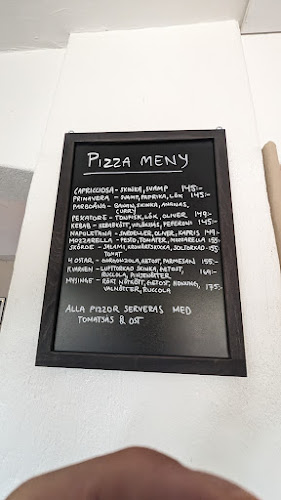 PIZZA MENY
CAPRICCIOSA - SKINKA, SVAMP 145:-
PRIMAVERA - SVAMP, PAPRIKA, LÖK 145:-
BANAN, SKINKA, ANANAS,
CURRY
PEKATORE - TONFISK, LÖK, OLIVER 149:-
KEBAB - KEBABKÖTT, VITLÖKSÅS, FEFERONI 145:-
NAPOLETANA - SARDELLER, OLIVER, KAPRIS 149
MOZZARELLA - PESTO, TOMATER, MOZZARELLA 155:-
SKÖRDE - SALAMI, KRONÄRTSKOCKA, SOLTORKAD 155
TOMAT
4 OSTAR - GORGONZOLA, GETOST, PARMESAN 155:-
KVARNEN - LUFTTORKAD SKINKA, GETOST, 169:-
RUCCOLA, PINJENÖTTER
MYSINGE - RÖKT NÖTKÖTT, GETOST, HONUNG, 175:-
VALNÖTTER, RUCCOLA
ALLA PIZZOR SERVERAS MED
TOMATSÅS & OST